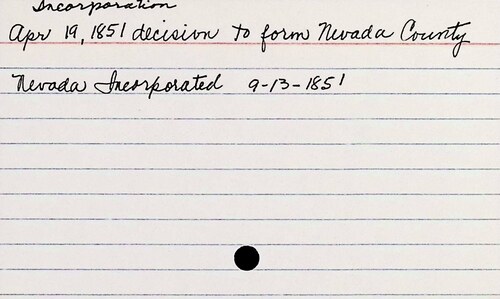 Incorporation
Apr 19, 1851 decision to form Nevada County
Nevada Incorporated 9-13-1851